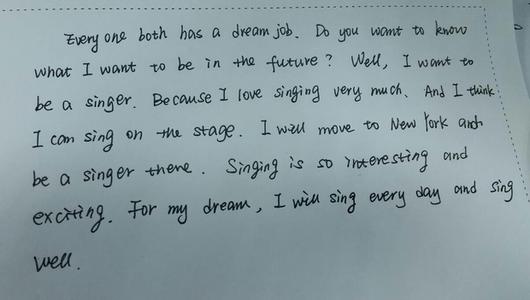 Every one both has a dream job. Do you want to know
what I want to be in the future? Well, I want to
be a singer. Because I love singing very much. And I think
I can sing on the stage. I will move to New York and
be a singer there. Singing is so interesting and
exciting. For my dream, I will sing every day and sing
well.